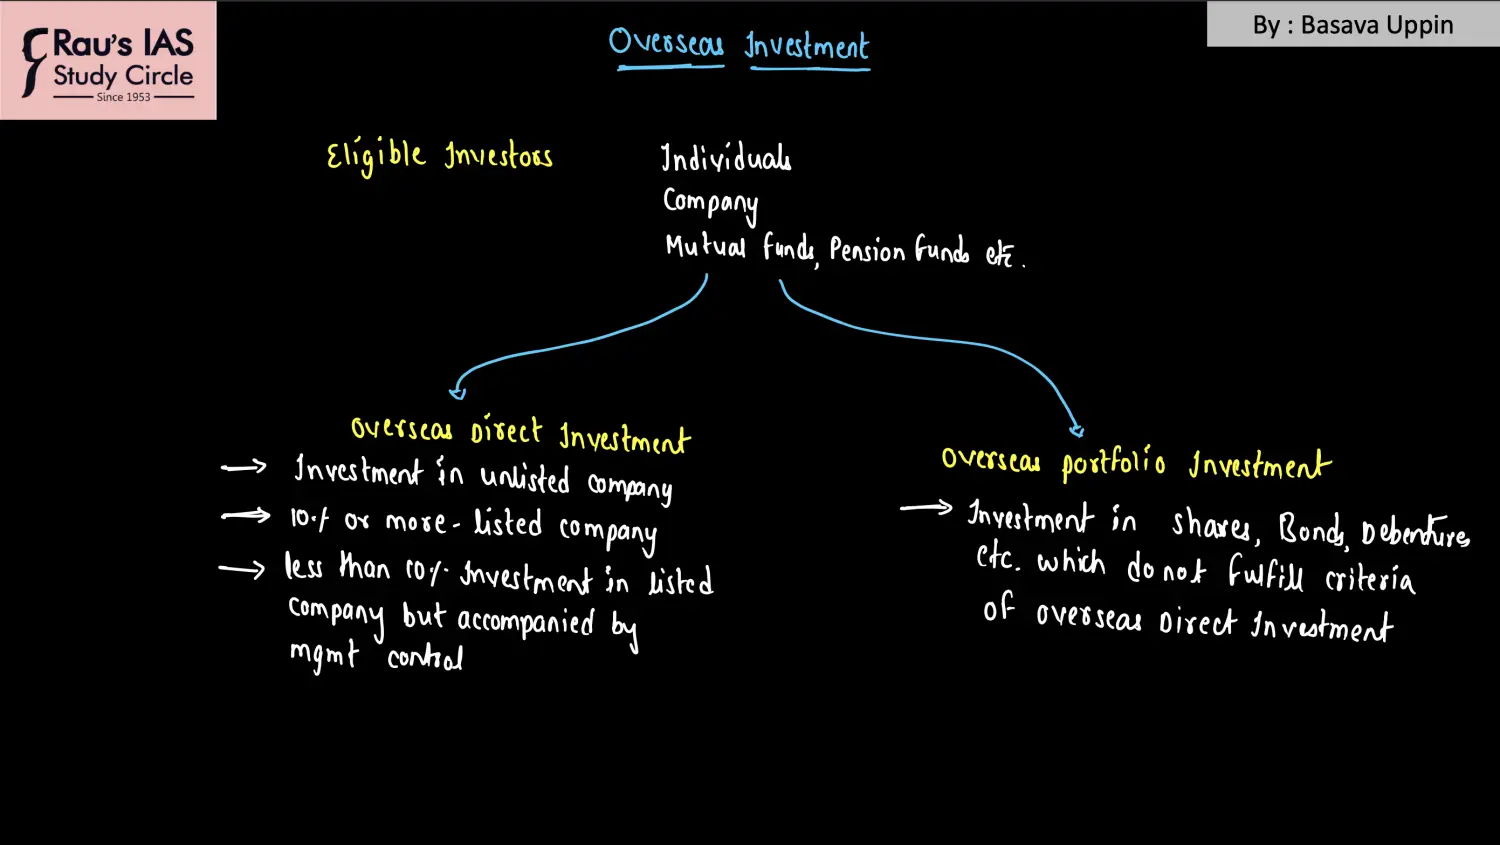 Rau's IAS
Study Circle
Since 1953
By : Basava Uppin
Overseas Investment
Eligible Investors
Individuals
Company
Mutual funds, Pension funds etc.
Overseas Direct Investment
→ Investment in unlisted company
→ 10% or more - listed company
→ less than 10% Investment in listed
company but accompanied by
mgmt control
Overseas portfolio Investment
→ Investment in shares, Bonds, Debentures
etc. which do not fulfill criteria
of overseas Direct Investment